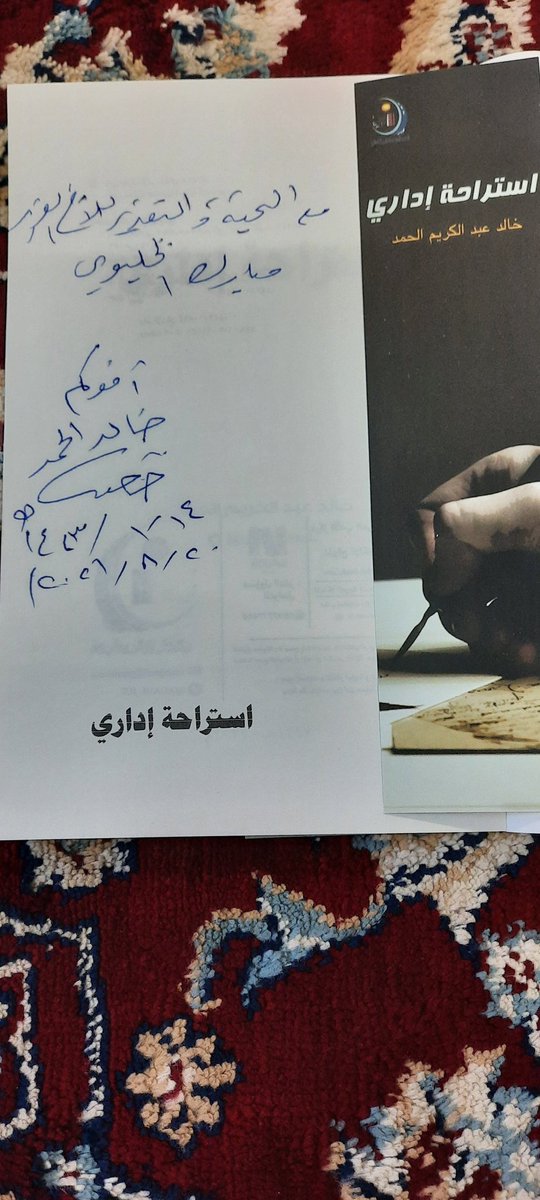 مع التحية والتقدير للأخ العزيز
مبارك الخليوي
أخوكم
خالد الحمد
٢٠٢١/٨/٢٠
استراحة إداري
استراحة إداري
خالد عبد الكريم الحمد